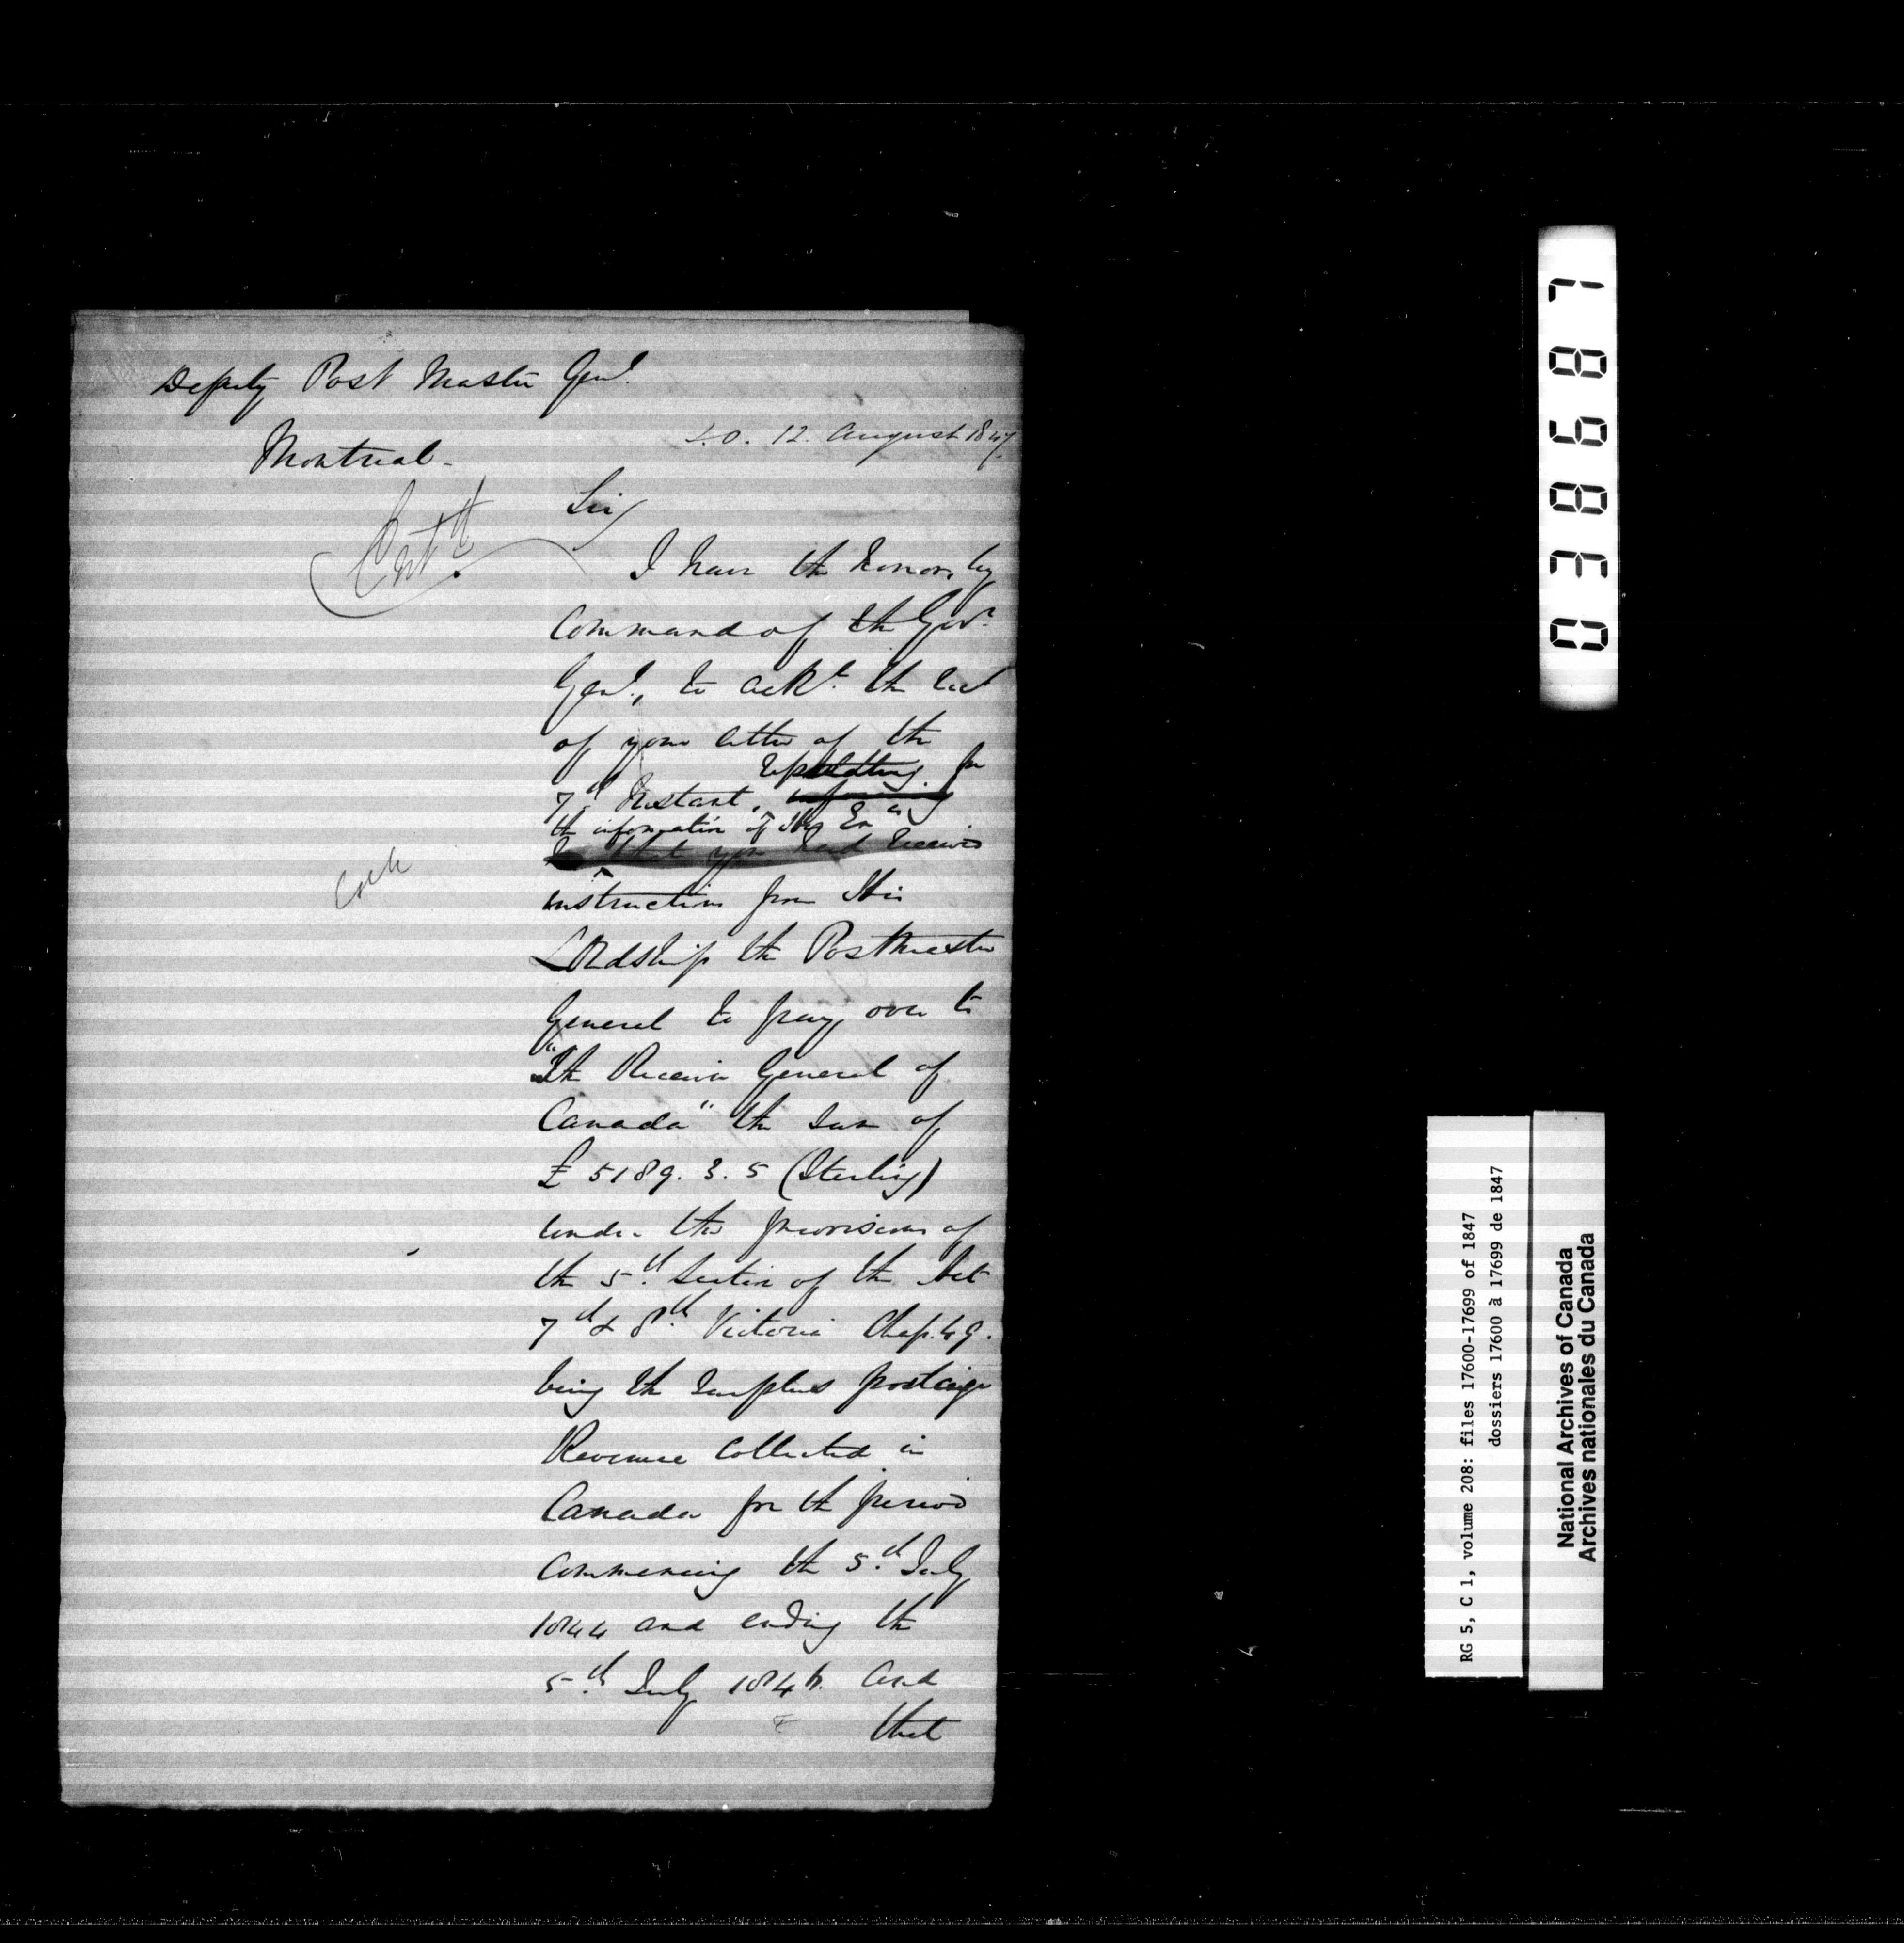 Deputy Post Master Genl.
Montreal.
S.O. 12. August 1847.
Entd.
Sir/
I have the honor, by
Command of the Govr.
Genl., to ackn. the rect
of your letter of the
reporting for
7th Instant, informing
the information of His Exy
that you had received
instructions from His
Lordship the Postmaster
General to pay over to
"The Receiver General of
Canada" the sum of
£ 5189. 3. 5 (Sterling)
under the provisions of
the 5th. Section of the Act
7th & 8th. Victoria Chap. 49.
being the surplus postage
Revenue Collected in
Canada for the period
Commencing the 5th. July
1844 and ending the
5th. July 1846. and
that
038687
RG 5, C 1, volume 208: files 17600-17699 of 1847
dossiers 17600 à 17699 de 1847
National Archives of Canada
Archives nationales du Canada